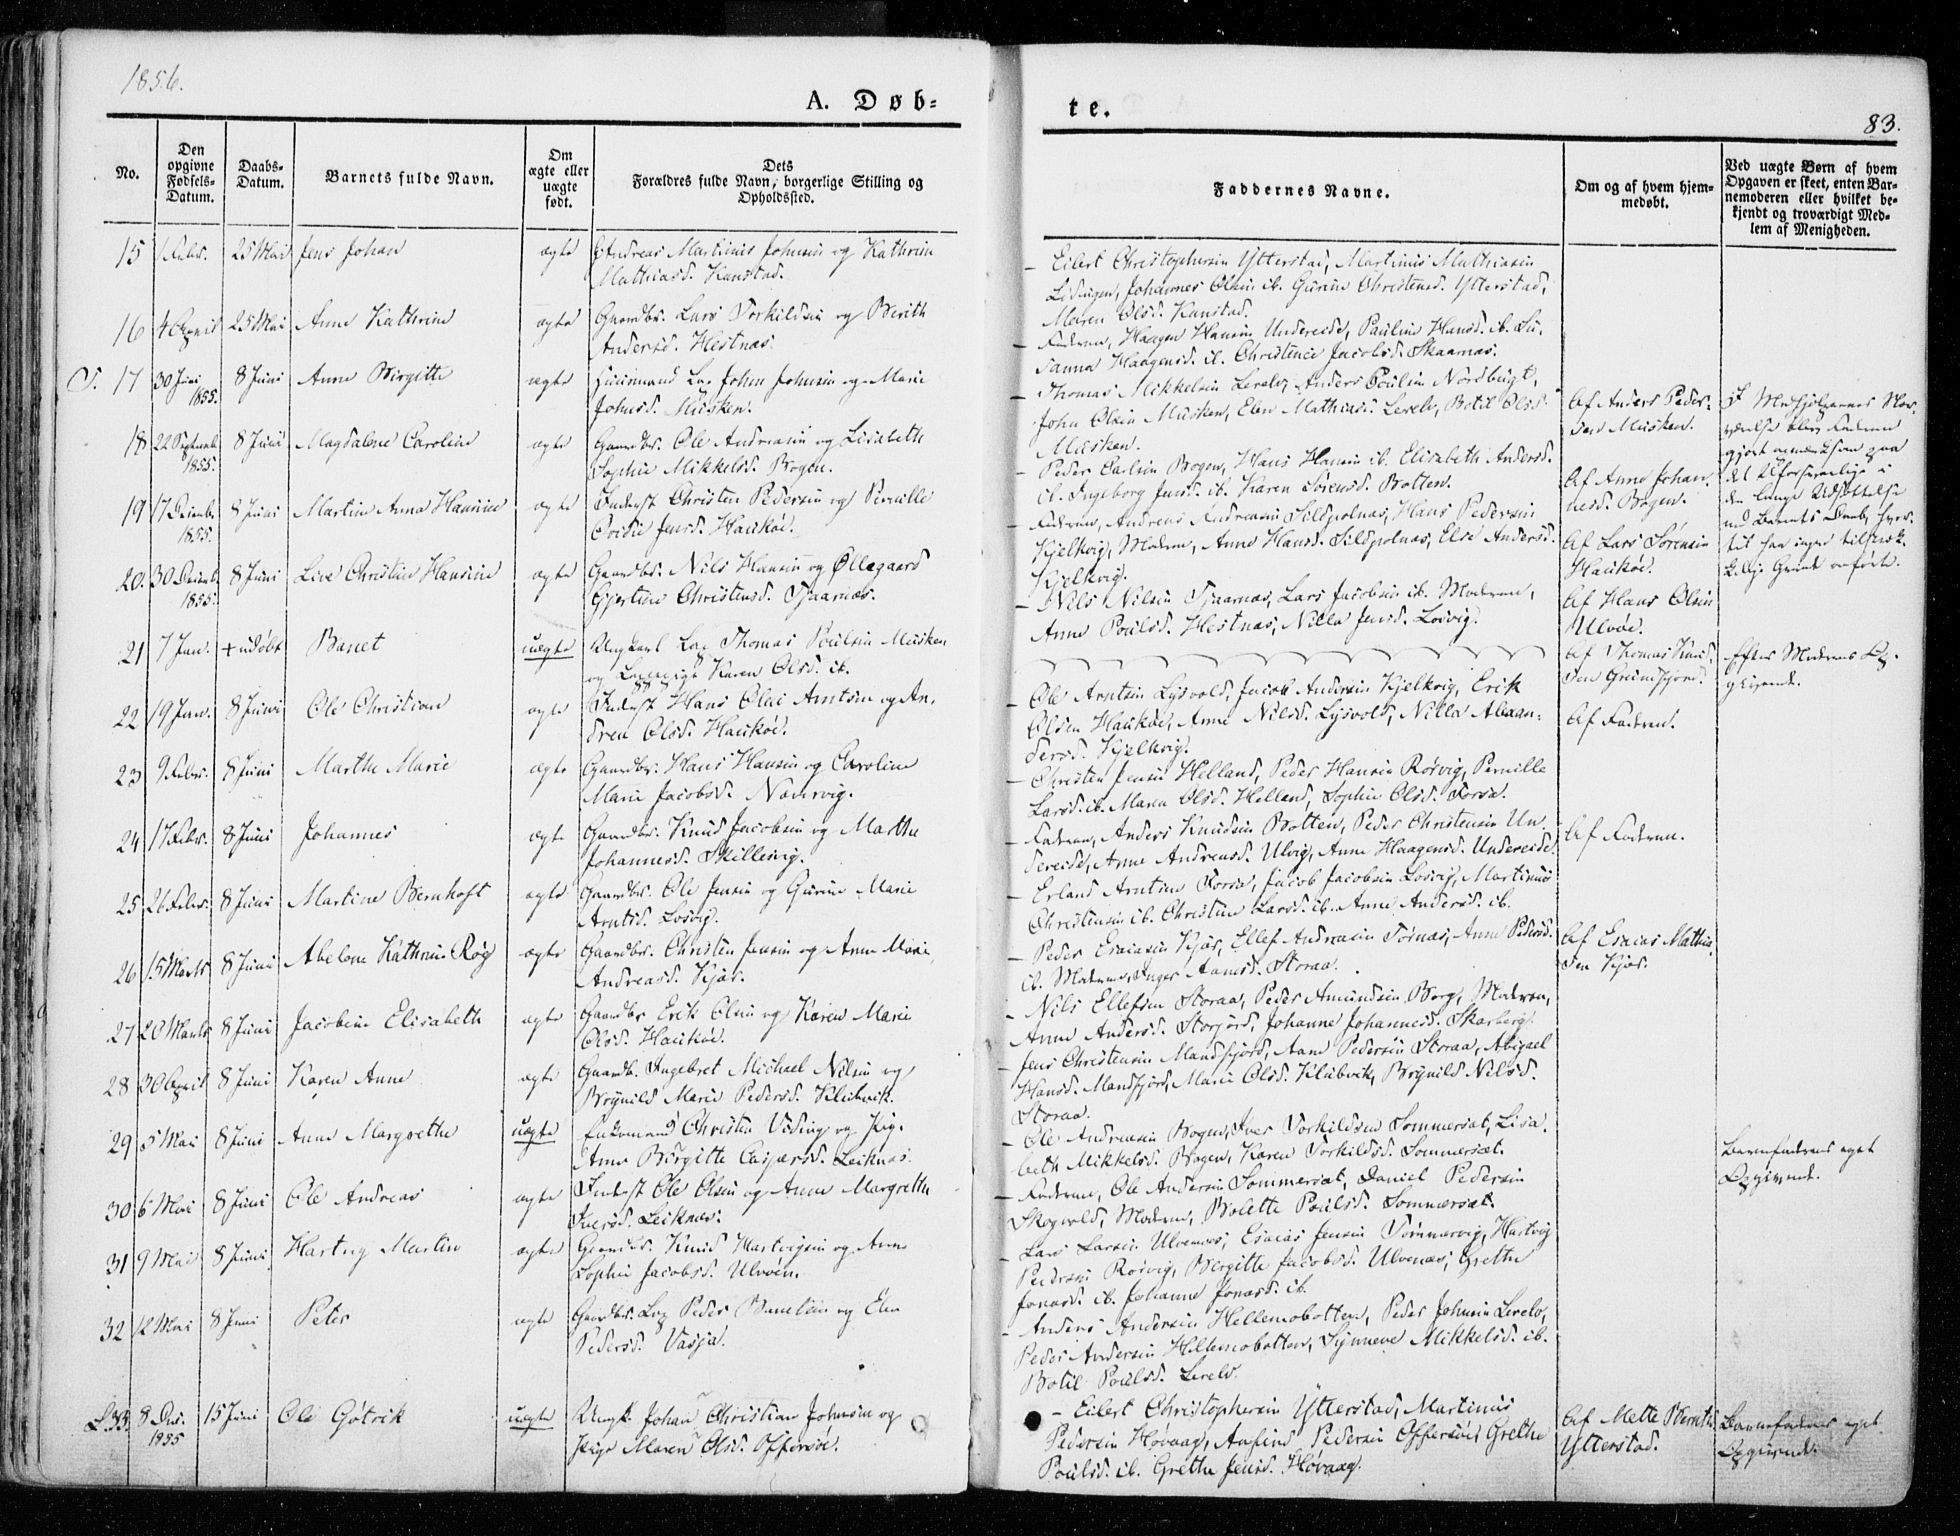 1856.
A. Døb-
te.
83.
No.
Den
opgivne
Fødsels-
Datum.
Daabs-
Datum.
Barnets fulde Navn.
Om
ægte eller
uægte
født.
Dets
Forældres fulde Navn, borgerlige Stilling og
Opholdssted.
Faddernes Navne.
Om og af hvem hjem-
medøbt.
Ved uægte Børn af hvem
Opgaven er skeet, enten Bar-
nemoderen eller hvilket be-
kjendt og troværdigt Med-
lem af Menigheden.
15 1 Febr. 25 Mai Jens Johan ægte Andreas Martinus Johnsen og Kathrin
Mathiasd. Kanstad.
Eilert Christophersen Ytterstad, Martinus Mathiasen
Lødingen, Johannes Olsen ib. Gurine Christensd. Ytterstad,
Maren Olsd. Kanstad.
16 4 April 25 Mai Anne Kathrine ægte Gaardbr. Lars Torkildsen og Berith
Andersd. Hestnæs.
Faderen, Haagen Hansen Undereide, Pauline Hansd. ib. Su-
sanna Haagensd. ib. Christence Jacobsd. Skaarnæs.
17 30 Juni 8 Juni Anne Birgitte ægte Lap John Johnsen og Marie
1855. Johnsd. Musken.
Thomas Mikkelsen Lerelv, Anders Poulsen Nordbugt,
John Olsen Musken, Elen Mathiasd. Lerelv, Botil Olsd.
Musken.
Af Anders Peder-
sen Musken.
18 22 Septemb. 8 Juni Magdalene Caroline ægte Gaardbr. Ole Andreasen og Lisabeth
1855. Sophie Mikkelsd. Bogen.
Peder Carlsen Bogen, Hans Hansen ib. Elisabeth Andersd.
ib. Ingeborg Jensd. ib. Karen Sørensd. Botten.
Af Anne Johan-
nesd. Bogen.
19 17 Decemb. 8 Juni Martine Anna Hansine ægte Inderst Christen Pedersen og Pernille
1855. Jensd. Haukøe.
Faderen, Andreas Andreasen Sildpolnæs, Hans Pedersen
Kjelkvig, Moderen, Anne Hansd. Sildpolnæs, Else Andersd.
Kjelkvig.
Af Lars Sørensen
Haukøe.
20. 30 Decemb. 8 Juni Live Christine Hansine ægte Gaardbr. Nils Hansen og Øllegaard
1855. Gjertine Christensd. Tjaarnæs.
Nils Nilsen Tjaarnæs, Lars Jacobsen ib. Moderen,
Anne Poulsd. Hestnæs, Nilla Jensd. Losvig.
Af Hans Olsen
Ulvøe.
21 7 Jan. + udøbt Barnet uægte Ungkarl Lap Thomas Poulsen Musken
og Lappepige Karen Olsd. ib.
Af Thomas
sen Grundfjord.
Efter Moderens Op-
givende.
22 19 Jan. 8 Juni Ole Christian ægte Inderst Hans Olai Arntsen og An-
drea Olsd. Haukøe.
Ole Arntsen Lysvold, Jacob Andersen Kjelkvig, Erik
Olsen Haukøe, Anne Nilsd. Lysvold, Nilla Alexan-
dersd. Kjelkvig.
Af Faderen.
23 9 Febr. 8 Juni Marthe Marie ægte Gaardbr. Hans Hansen og Caroline
Marie Jacobsd. Narvig.
Christen Jensen Helland, Peder Hansen Rørvig, Pernille
Larsd. ib. Maren Olsd. Helland, Sophie Olsd. Forsa.
24 17 Febr. 8 Juni Johannes ægte Gaardbr. Knud Jacobsen og Marthe
Johannesd. Skillevig.
Faderen, Anders Knudsen Botten, Peder Christensen Un-
dereide, Anne Andreasd. Ulvig, Anne Haagensd. Undereide.
Af Faderen.
25 26 Febr. 8 Juni Martine Bernhoft ægte Gaardbr. Ole Jensen og Gurine Marie
Arntsd. Losvig.
Erland Arntsen Forsa, Jacob Jacobsen Losvig, Martinus
Christensen ib. Christine Larsd. ib. Anne Andersd. ib.
26 15 Marts 8 Juni Abelone Kathrine Røg ægte Gaardbr. Christen Jensen og Anne Marie
Andreasd. Kjær.
Peder Esaiasen Kjær, Ellef Andreasen Tørnæs, Anne Pedersd.
ib. Moderen, Inger Aanesd. Storaa.
Af Esaias Mathia-
sen Kjær.
27 20 Marts 8 Juni Jacobine Elisabeth ægte Gaardbr. Erik Olsen og Karen Marie
Olsd. Haukøe.
Nils Ellefsen Storaa, Peder Amundsen Borg, Moderen,
Anne Andersd. Storjord, Johanne Johannesd. Skarberg.
28 30 April 8 Juni Karen Anne ægte Gaardb. Ingebret Michael Nilsen og
Brynild Marie Pedersd. Klubvik.
Jens Christensen Mandfjord, Aane Pedersen Storaa, Abigael
Hansd. Mandfjord, Marie Olsd. Klubvik, Brynild Nilsd.
Storaa.
29 5 Mai 8 Juni Anne Margrethe uægte Enkemand Christen og Pig.
Anne Birgitte Caspersd. Leiknæs.
Ole Andreasen Bogen, Iver Torkildsen Sommersæt, Lisa-
beth Mikkelsd. Bogen, Karen Torkildsd. Sommersæt.
Barnefaderens eget
Opgivende.
30 6 Mai 8 Juni Ole Andreas ægte Inderst Ole Olsen og Anne Margrethe
Iversd. Leiknæs.
Faderen, Ole Andersen Sommersæt, Daniel Pedersen
Skogvold, Moderen, Bolette Poulsd. Sommersæt.
31 9 Mai 8 Juni Hartvig Martin ægte Gaardbr. Knud Hartvigsen og Anne
Sophie Jacobsd. Ulvøen.
Lars Larsen Ulvenæs, Esaias Jensen Tømmervig, Hartvig
Pedersen Rørvig, Bergitte Jacobsd. Ulvenæs, Grethe
Jonasd. ib. Johanne Jonasd. ib.
32 12 Mai 8 Juni Peter ægte Gaardbr. Lap Peder og Elen
Pedersd. Vasja.
Anders Andersen Hellemobotten, Peder Johnsen Lerelv,
Peder Andersen Hellemobotten, Synneve Mikkelsd. ib.
Botil Poulsd. Lerelv.
L. 33. 8 Dec. 15 Juni Ole Gotvik uægte Ungk. Johan Christian Johnsen og
1855 Pige Maren Olsd. Offersøe.
Eilert Christophersen Ytterstad, Martinus
Pedersen Hovaag, Amund Pedersen Offersøe, Grethe
Poulsd. ib. Grethe Jensd. Hovaag.
Af Mette
Ytterstad.
Barnefaderens eget
Opgivende.